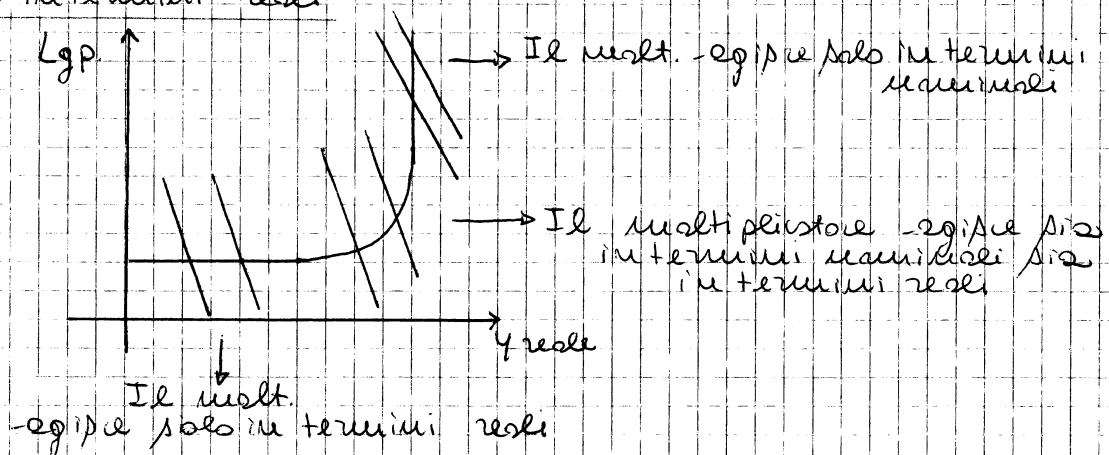 in termini reali
Lgp.
Il molt. agisce solo in termini
nominali
Il moltiplicatore agisce sia
in termini nominali sia
in termini reali
Y reale
Il molt.
agisce solo in termini reali